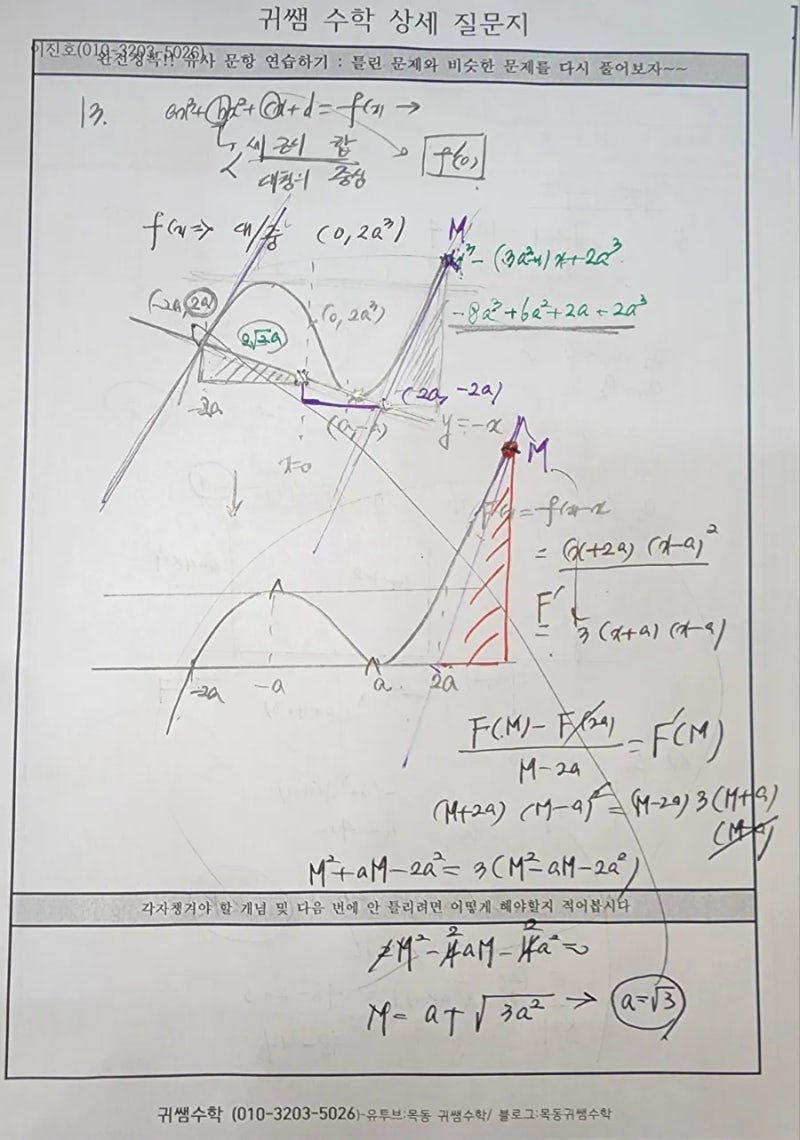 귀쌤 수학 상세 질문지
이진호(010-3203-5026)
완전정복!! 유사 문항 연습하기 : 틀린 문제와 비슷한 문제를 다시 풀어보자~~
13. ax³+bx²+cx+d=f(x) →
세 근의 합
대칭의 중심
f(0)
f(x)⇒ (0, 2a³)
M
x³-(3a²+1)x+2a³
(-2a, 2a)
(0, 2a³)
-8a³+6a²+2a+2a³
2√2a
(2a, -2a)
-2a
(a, -a)
y=-x
x=0
M
F(x)=f(x)-x
= (x+2a)(x-a)²
F'
= 3(x+a)(x-a)
-2a -a a 2a
F(M)-F(2a)
M-2a
=F'(M)
(M+2a)(M-a)²=(M-2a)3(M+a)
(M-a)
M²+aM-2a²=3(M²-aM-2a²)
각자챙겨야 할 개념 및 다음 번에 안 틀리려면 어떻게 해야할지 적어봅시다
2M²-4aM-4a²=0
2 2
M= a+√3a² → a=√3
귀쌤수학 (010-3203-5026)-유투브:목동 귀쌤수학/ 블로그:목동귀쌤수학